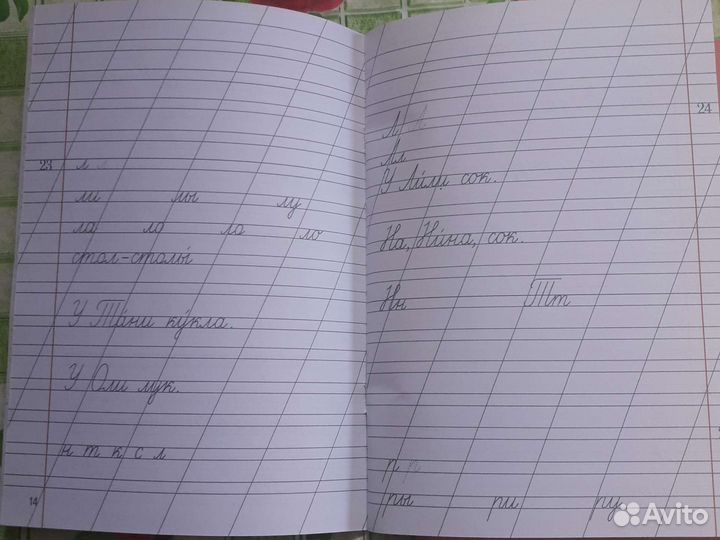 23
л л
ли лы лу
ла ло ла ло
стол-столы́
У Та́ни ку́кла.
У Оли лук.
н т к с л
14
24
Л Л
Лл
У Ли́ли сок.
На, Ни́на, сок.
Нн Тт
р р
ры ри ру
Avito